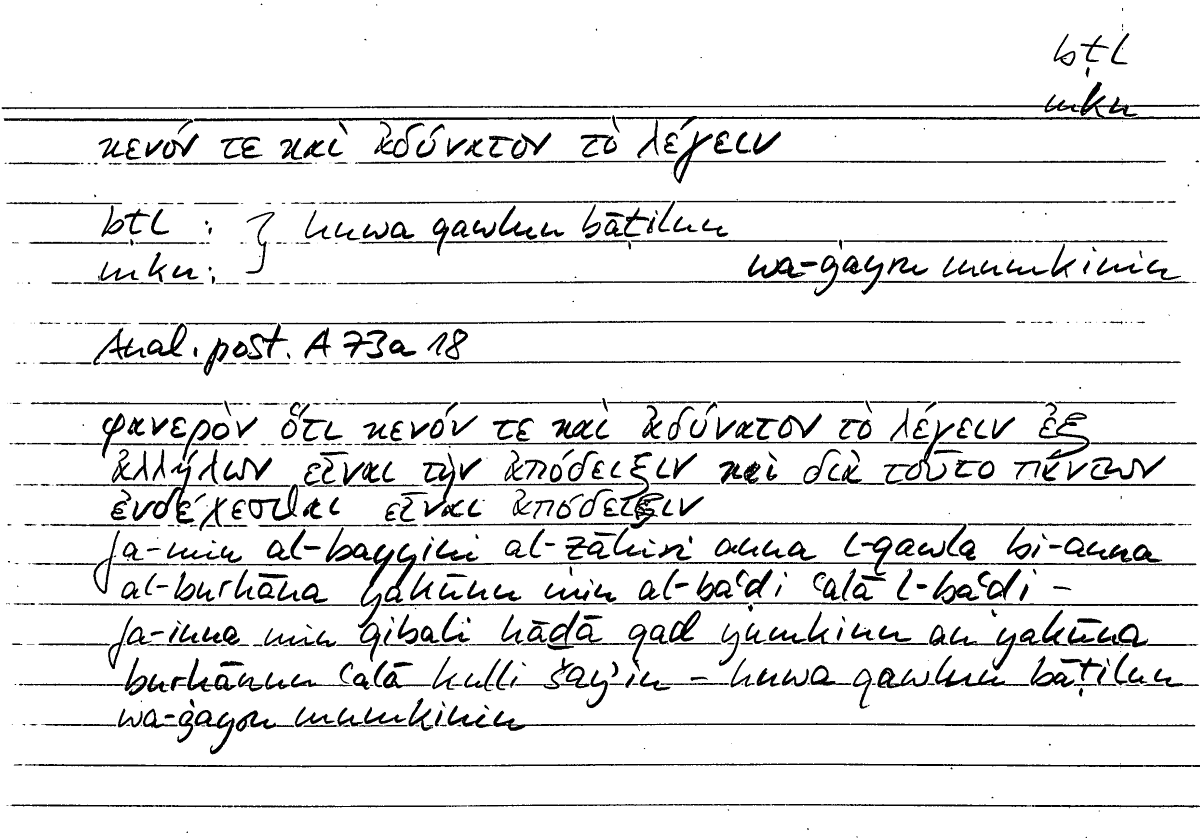 bṭl
mkn
κενόν τε καὶ ἀδύνατον τὸ λέγειν
bṭl : } huwa qawlun bāṭilun
mkn: wa-ġayru mumkinin
Anal. post. A 73a 18
φανερὸν ὅτι κενόν τε καὶ ἀδύνατον τὸ λέγειν ἐξ
ἀλλήλων εἶναι τὴν ἀπόδειξιν καὶ διὰ τοῦτο πάντων
ἐνδέχεσθαι εἶναι ἀπόδειξιν
fa-min al-bayyini al-ẓāhiri anna l-qawla bi-anna
al-burhāna yakūnu min al-baʿḍi ʿalā l-baʿḍi –
fa-inna min qibali hāḏā qad yumkinu an yakūna
burhānun ʿalā kulli šayʾin – huwa qawlun bāṭilun
wa-ġayru mumkinin